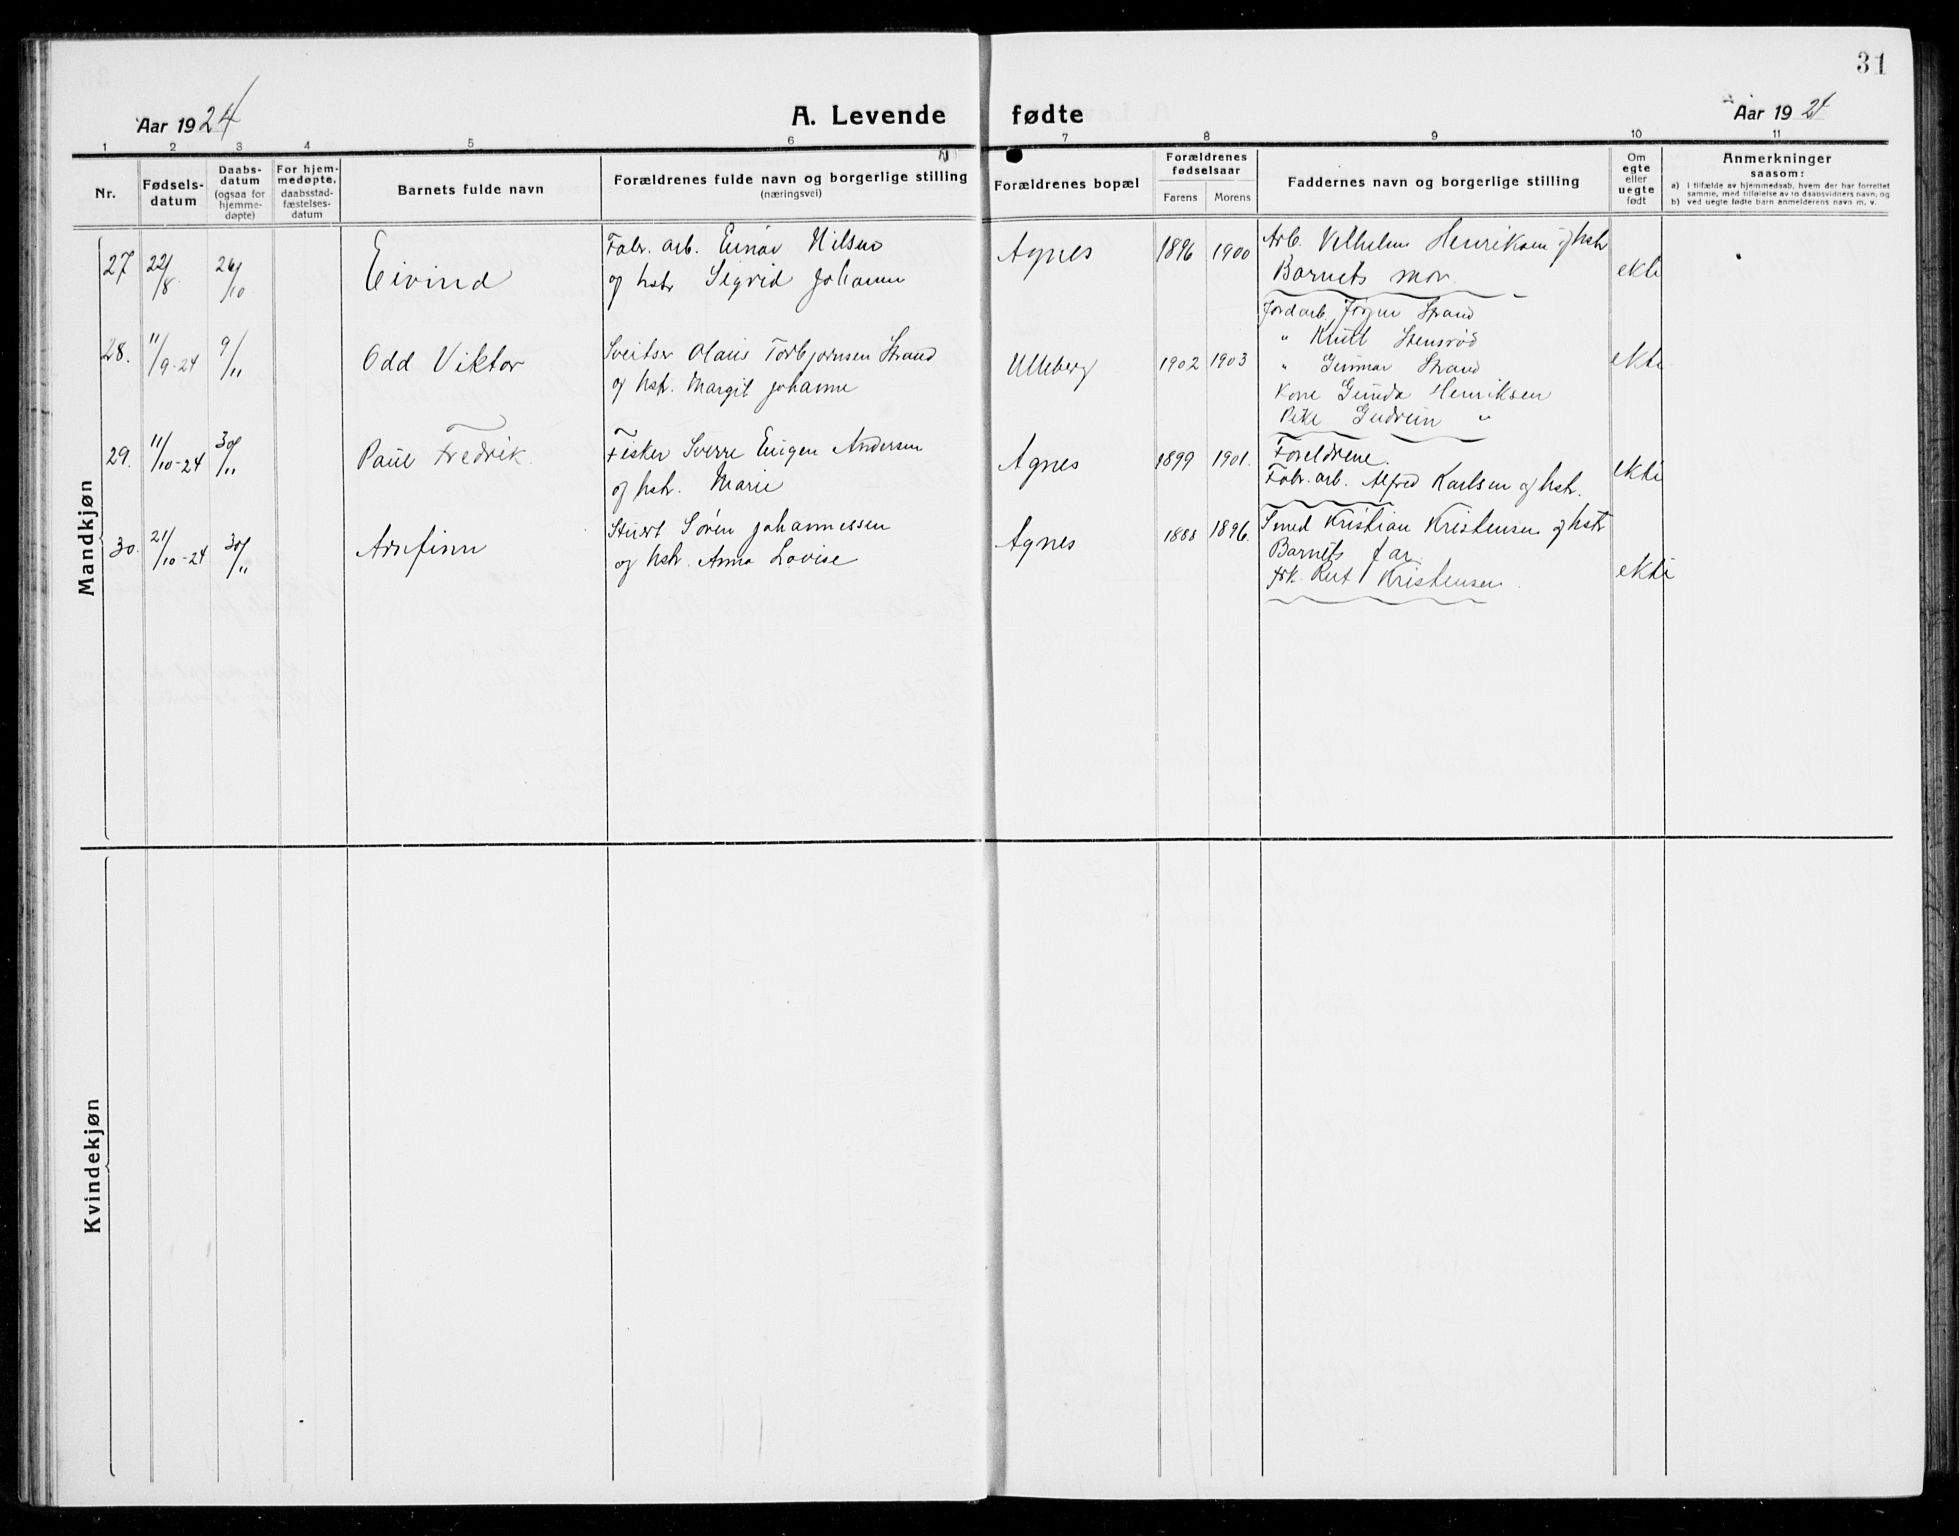 31
Aar 1924 A. Levende fødte Aar 1924
1 2 3 4 5 6 7 8 9 10 11
Nr. Fødsels-datum Daabs-datum (ogsaa for hjemme-døpte) For hjem-medøpte. daabsstad-fæstelses-datum Barnets fulde navn Forældrenes fulde navn og borgerlige stilling (næringsvei) Forældrenes bopæl Forældrenes fødselsaar Farens Morens Faddernes navn og borgerlige stilling Om egte eller uegte født Anmerkninger saasom:
a) i tilfælde av hjemmedaab, hvem der har forrettet samme, med tilføielse av to daabsvidners navn, og
b) ved uegte fødte barn anmelderens navn m. v.
Mandkjøn
27 22/8 26/10 Eivind Fabr. arb. Einar Nilsen Agnes 1896 1900 Arb. Vilhelm Henriksen og hstr
og hstr Sigrid Johanne Barnets mor. ekte
Jordarb. Jörgen Strand
28. 11/9-24 9/11 Odd Viktor Sveitser Olaus Torbjørnsen Strand Ulleberg 1902 1903 " Knut Stensrød ekte
og hstr. Margit Johanne " Gunnar Strand
Kone Gunda Henriksen
Pike Gudrun "
29. 11/10-24 30/11 Paul Fredrik. Fisker Sverre Eugen Andersen Agnes 1899 1901. Foreldrene. ekte
og hstr. Marie Fabr. arb. Alfred Karlsen og hstr.
30. 21/10-24 30/11 Arnfinn Stuert Sören Johannessen Agnes 1888 1896. Smed Kristian Kristensen og hstr
og hstr. Anna Lovise Barnets far
frk. Rut Kristensen. ekte
Kvindekjøn